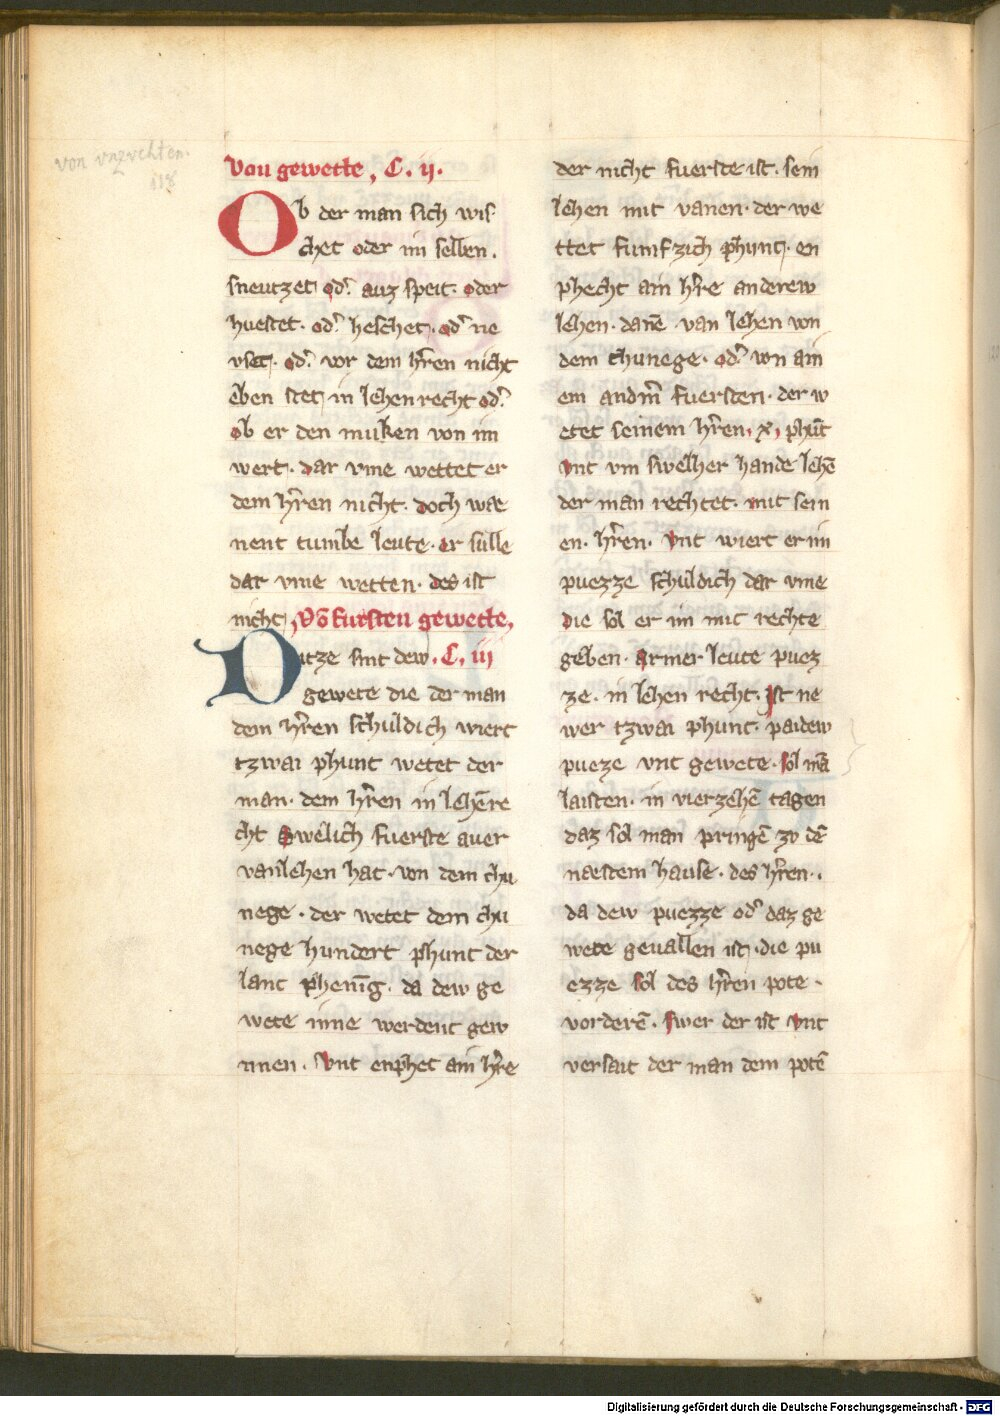 von vnzvchten.
118
Von gewette, C. ij.
Ob der man sich wis
chet oder im selben.
sneutzet od᷑. auz speit. oder
huestet. od᷑ heschet. od᷑ ne
vset. od᷑. vor dem hr̄en nicht
eben stet in lehenrecht od᷑
ob er den muken von im
wert. dar vme wettet er
dem hr̄en nicht. doch wae
nent tumbe leute. er sulle
dar vme wetten. des ist
nicht, Vō fursten gewette,
Ditze sint dew. C. iij
gewete die der man
dem hr̄en schuldich wiert
tzwai phunt wetet der
man. dem hr̄en in lehēre
cht Swelich fuerste auer
vanlehen hat. von dem chu
nege. der wetet dem chu
nege hundert phunt der
lant phenīg. da dew ge
wete inne werdent gew
nnen. Vnt enphet ain hr̄e
der nicht fuerste ist. sein
lehen mit vanen. der we
ttet fumfzich phunt. en
phecht ain hr̄e anderew
lehen. danē van lehen von
dem chunege. od᷑ von ain
em andm̄ fuersten. der w
etet seinem hr̄en. x. phūt
Vnt vm swelher hande lehē
der man rechtet. mit sein
en. hr̄en. Vnt wiert er im
puezze schuldich dar vme
die sol er im mit rechte
geben. Armer leute puez
ze. in lehen recht. Ist ne
wer tzwai phunt. paidew
pueze vnt gewete. sol mā
laisten. in vierzehē tagen
daz sol man pringē zv dē
naestem hause. des hr̄en..
da dew puezze od᷑ daz ge
wete geuallen ist. die pu
ezze sol des hr̄en pote.
vorderē. Swer der ist Vnt
versait der man dem potē
Digitalisierung gefördert durch die Deutsche Forschungsgemeinschaft - DFG